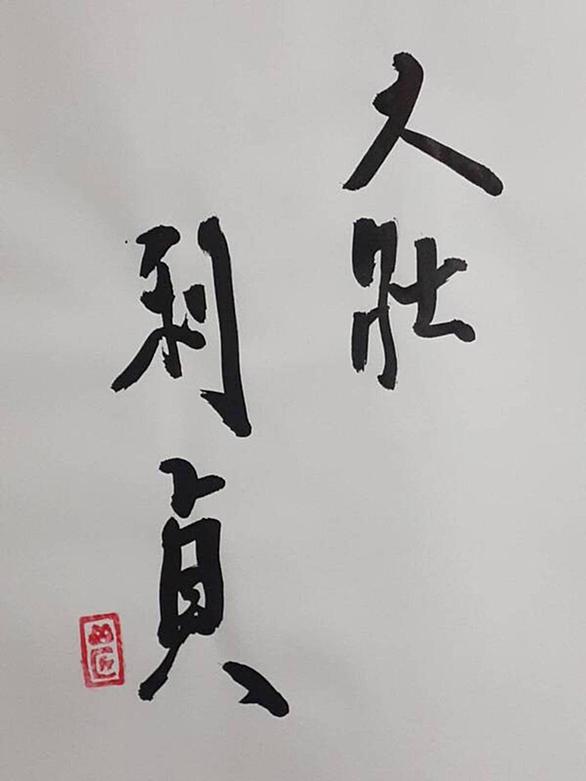 大壯
利貞